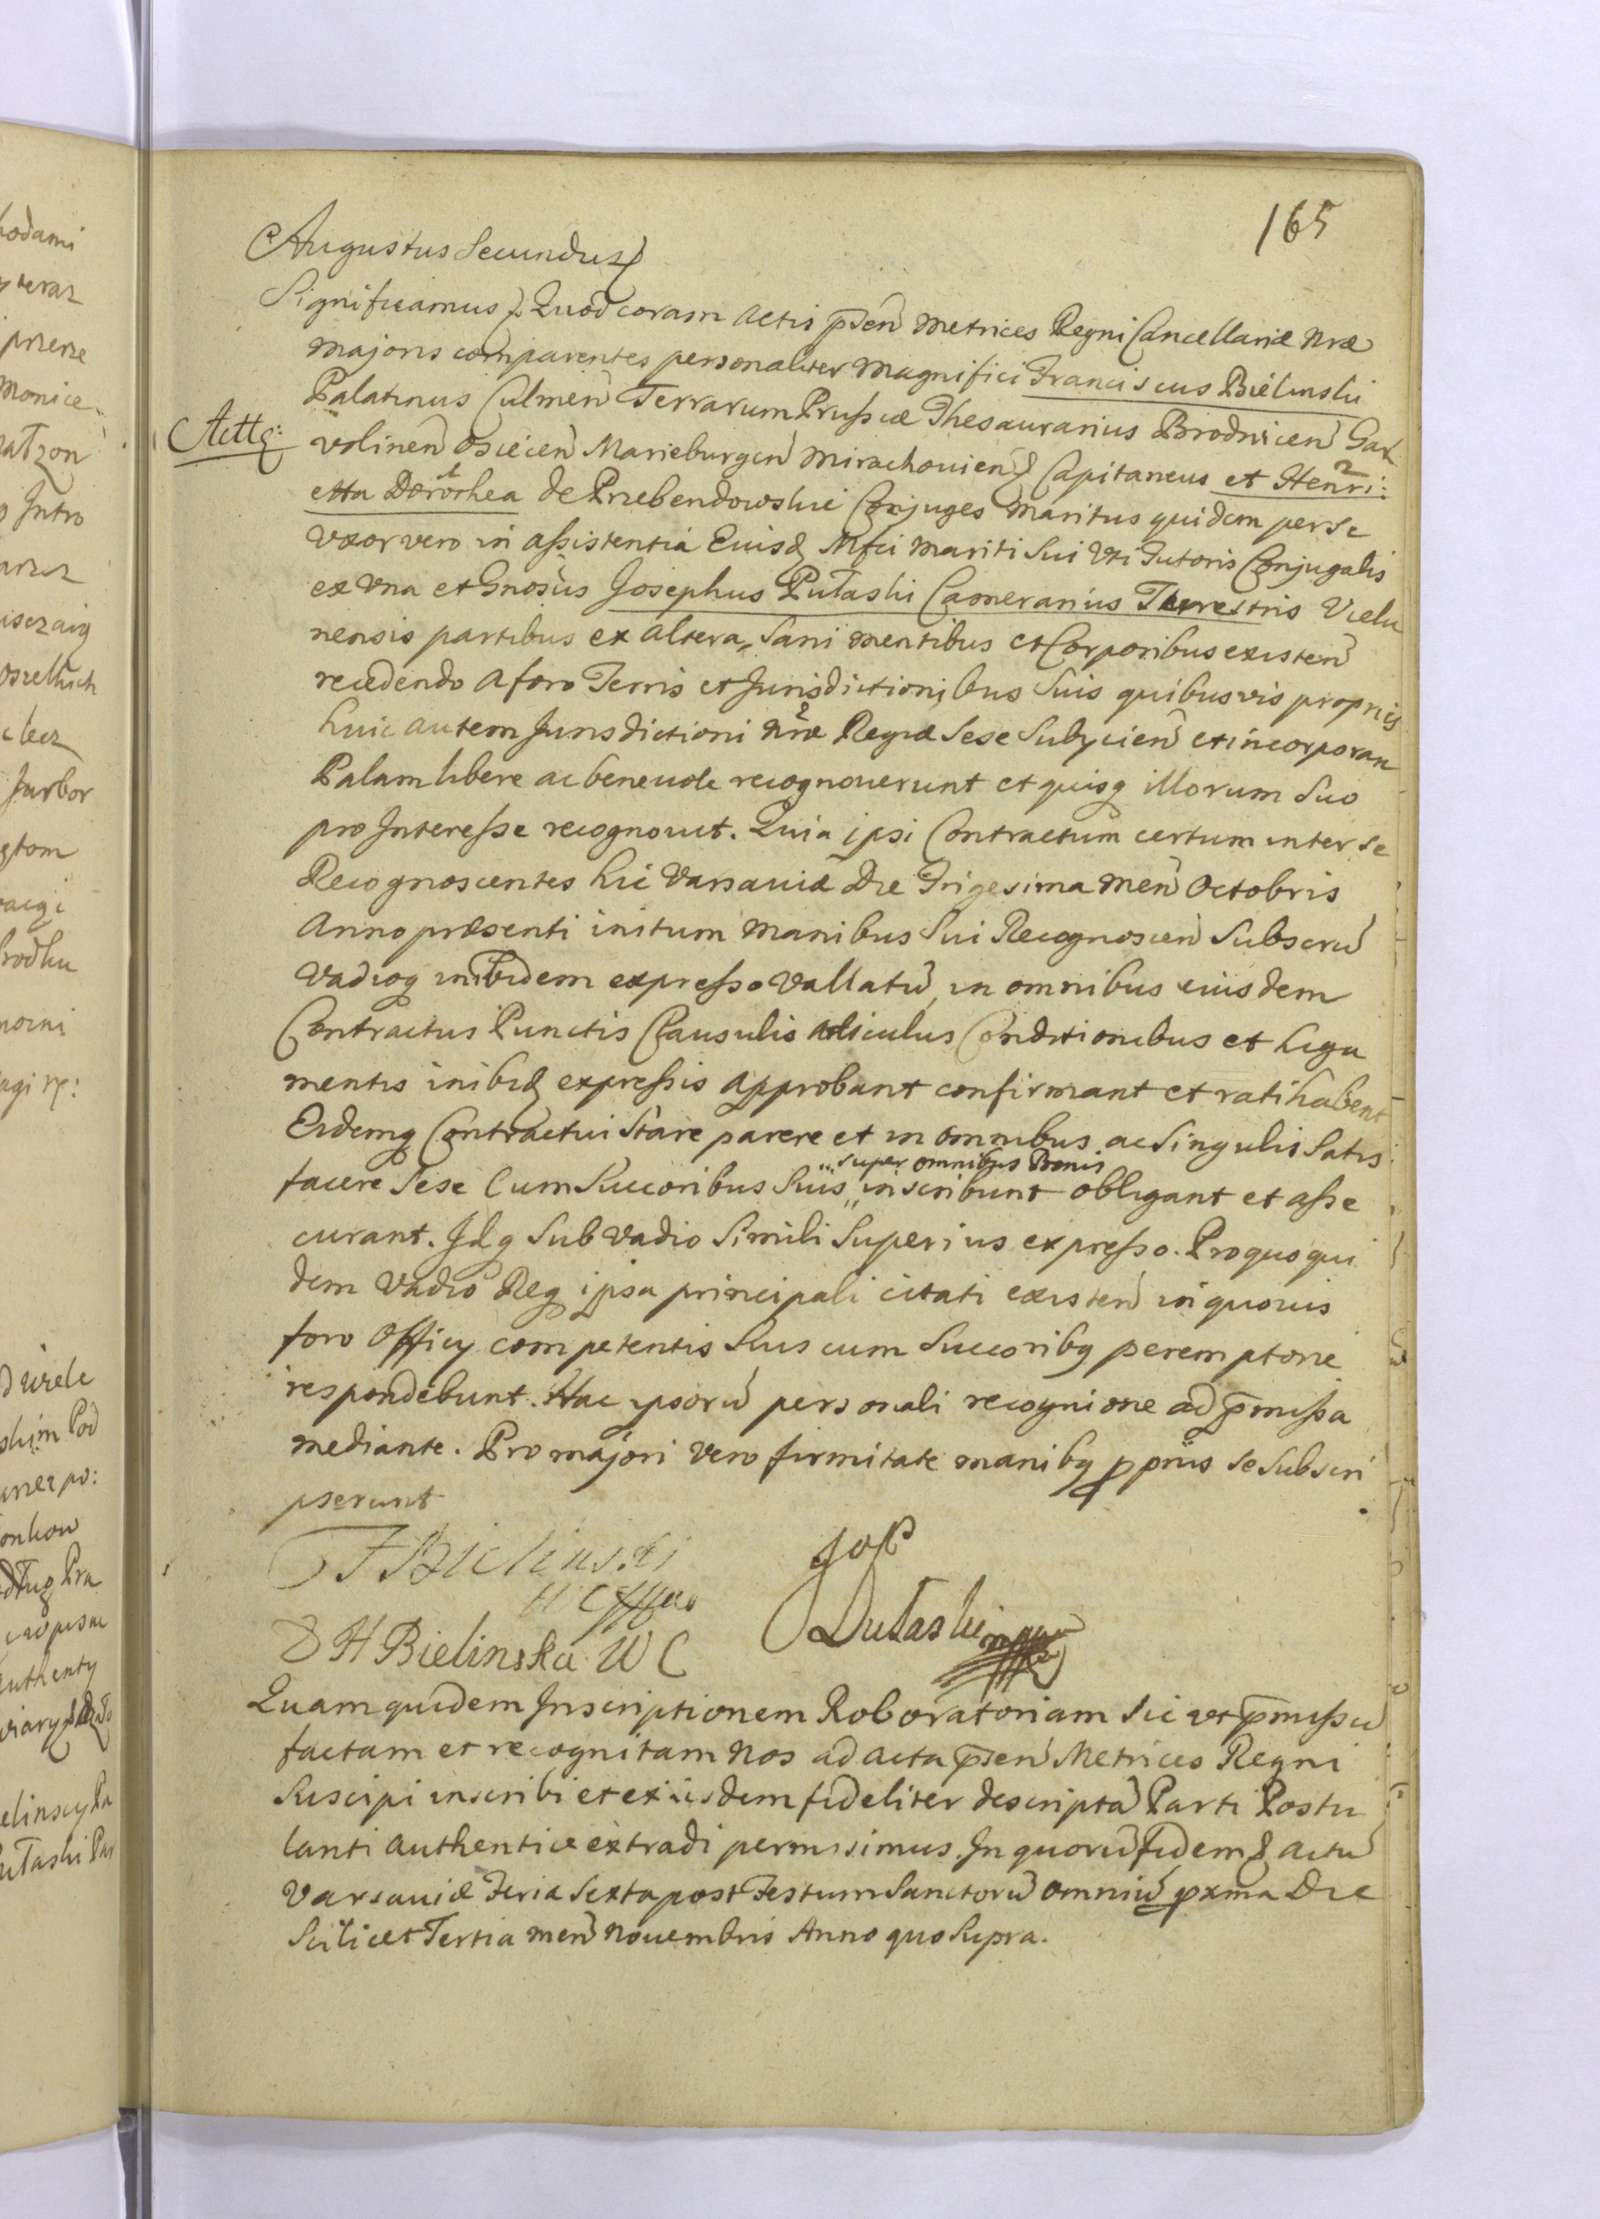 165
Augustus Secundus
Significamus Quod coram Actis p̄sen Metrices Regni Cancellariæ Nræ
Majoris comparentes personaliter Magnifici Franciscus Bielinski
Palatinus Culmen Terrarum Prussiæ Thesaurarius Brodnicen Gar
Actt
volinen Osiecen Marieburgen Mirachovien Capitaneus et Henri:
etta Dorothea de Przebendowskie Conjuges Maritus quidem per se
Uxor vero in assistentia Eiusd Mfci Mariti Sui Uti Tutoris Conjugalis
ex Una et Gnosus Josephus Pułaski Camerarius Terrestris Vielu
nensis partibus ex Altera, Sani mentibus et Corporibus existen
recedendo A foro Terris et Jurisdictionibus Suis quibusvis propriis
huic autem Jurisdictioni Nræ Regiæ Sese Subjicien et incorporan
Palam libere ac benevole recognoverunt et quisq illorum Suo
pro Interesse recognovit. Quia ipsi Contractum certum inter se
Recognoscentes hic Varsaviæ Die Trigesima Men Octobris
Anno præsenti initum Manibus Sui Recognoscen Subscru
Vadioq inibidem expresso Vallatu, in omnibus eiusdem
Contractus Punctis Clausulis Articulus Conditionibus et Liga
mentis inibid expressis Approbant confirmant et ratihabent
Eidemq Contractui Stare parere et in omnibus ac Singulis Satis
super omnibus Bonis
facere Sese Cum Succoribus Suis inscribunt obligant et asse
curant. Idq Sub Vadio Simili Superius expresso. Pro quo qui
dem Vadio Req ipsa principali citati existen in quovis
foro Officy competentis Suis cum Succoribq peremptorie
respondebunt. Hac ipsoru personali recognione ad p̄missa
mediante. Pro majori vero firmitate manibq ppriis se Subscri
pserunt
F Bielinski
WC
Jos
Pułaski
D H Bielinska W C
Quam quidem Inscriptionem Roboratoriam Sic ut p̄missu
factam et recognitam Nos ad Acta p̄sen Metrices Regni
Suscipi inscribi et ex iisdem fideliter descripta Parti Postu
lanti Authentice extradi permisimus. In quoru fidem Actu
Varsaviæ Feria Sexta post Festum Sanctoru Omniu pxma Die
Scilicet Tertia men Novembris Anno quo Supra.